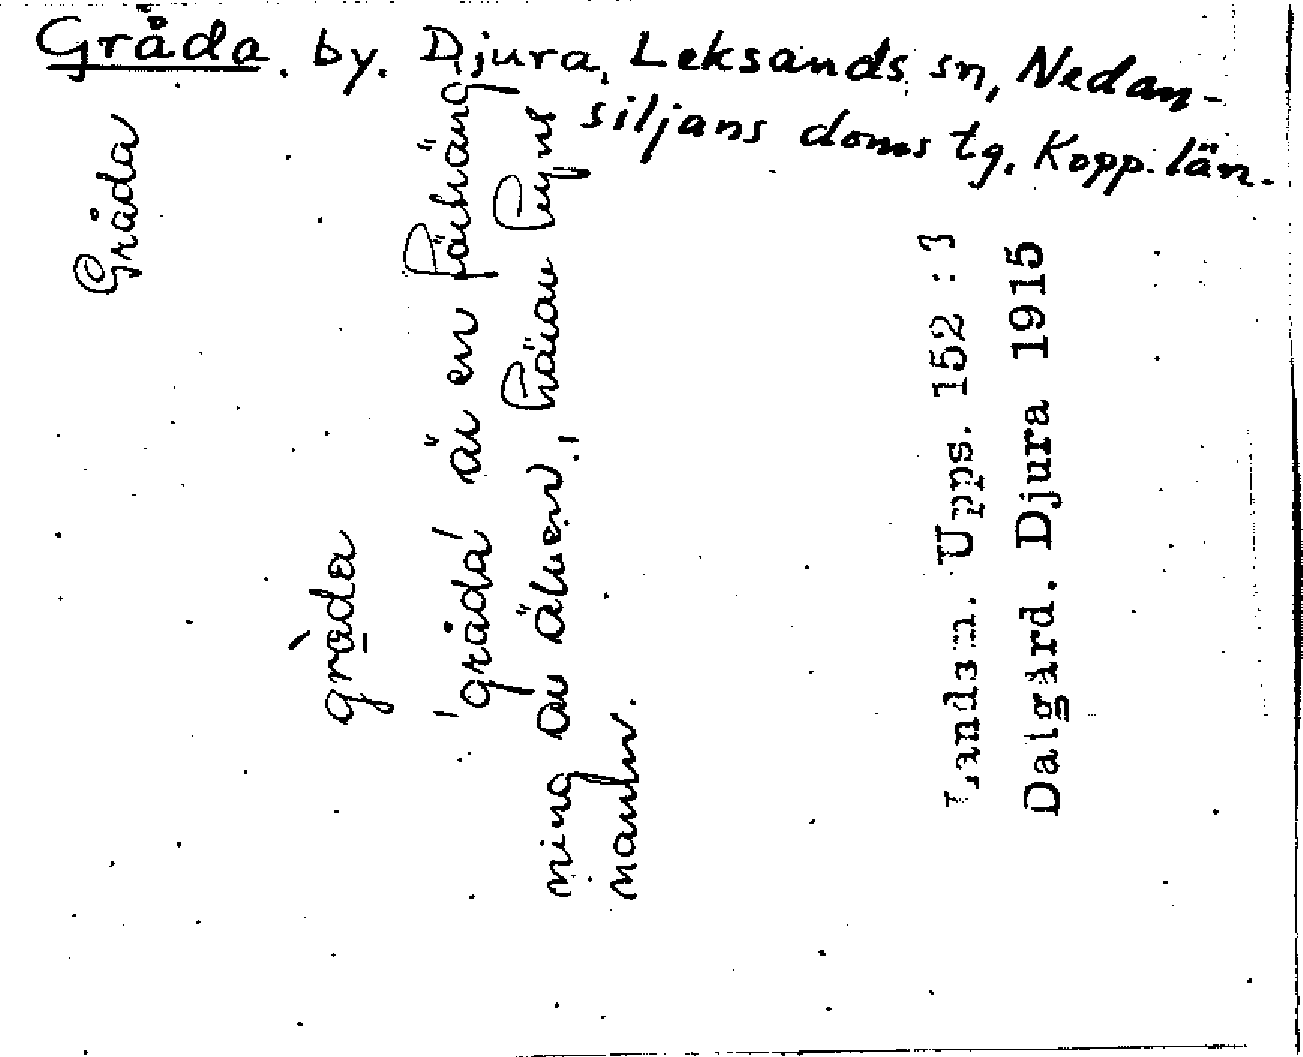 Gråda. by. Djura, Leksands sn, Nedan-
siljans doms tg. Kopp. län.
Gråda
gråda
'gråda' är en förträng
ning av älven, härav byns
namn.
Landsm. Upps. 152 : 3
Dalgård. Djura 1915